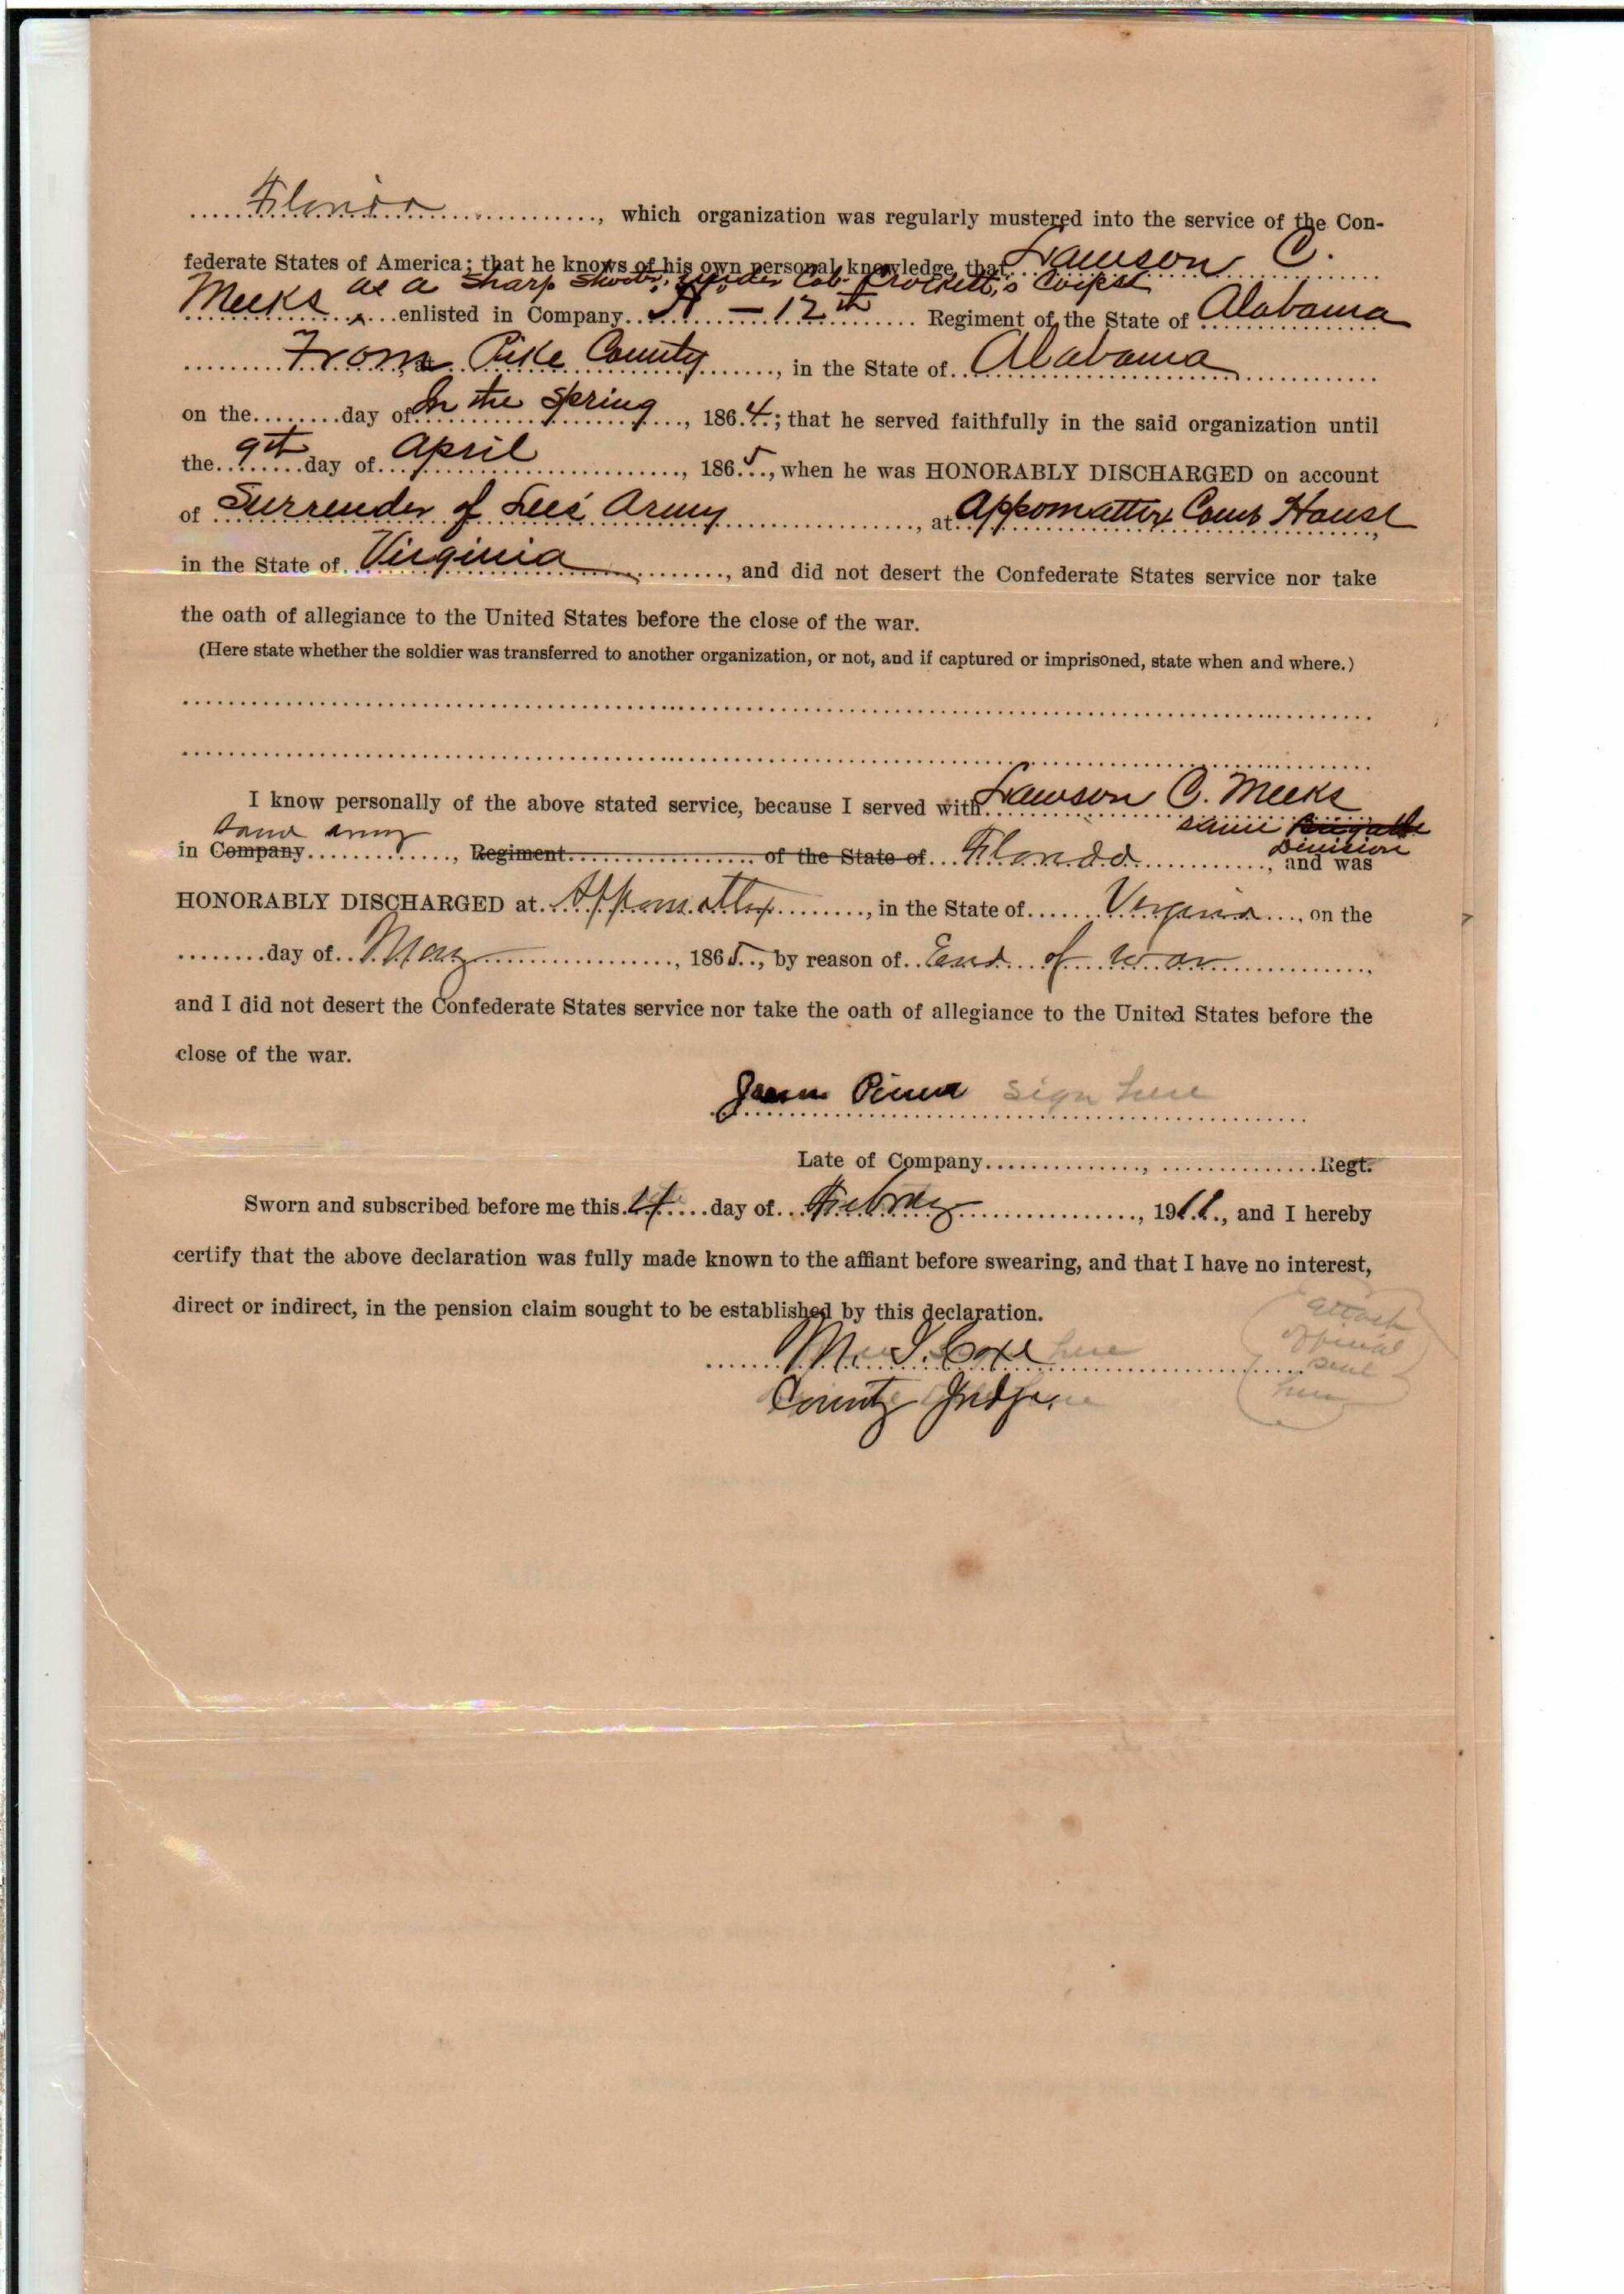 Florida, which organization was regularly mustered into the service of the Con-
federate States of America; that he knows of his own personal knowledge that Lawson C.
as a Sharp Shooter, under Col. Crockett's Corps
Meeks enlisted in Company - 12th Regiment of the State of Alabama
From Pike County, in the State of Alabama
on the day of In the Spring, 1864; that he served faithfully in the said organization until
the 9th day of April, 1865, when he was HONORABLY DISCHARGED on account
of Surrender of Lee's Army, at Appomattox Court House
in the State of Virginia, and did not desert the Confederate States service nor take
the oath of allegiance to the United States before the close of the war.
(Here state whether the soldier was transferred to another organization, or not, and if captured or imprisoned, state when and where.)
I know personally of the above stated service, because I served with Lawson C. Meeks
same army same Brigade Division
in Company, Regiment of the State of Florida, and was
HONORABLY DISCHARGED at Appomattox, in the State of Virginia, on the
day of May, 1865, by reason of End of War
and I did not desert the Confederate States service nor take the oath of allegiance to the United States before the
close of the war.
sign here
Late of Company, Regt.
Sworn and subscribed before me this day of Febry, 1911, and I hereby
certify that the above declaration was fully made known to the affiant before swearing, and that I have no interest,
direct or indirect, in the pension claim sought to be established by this declaration.
attach
official
seal
here
Cox here
County Judge